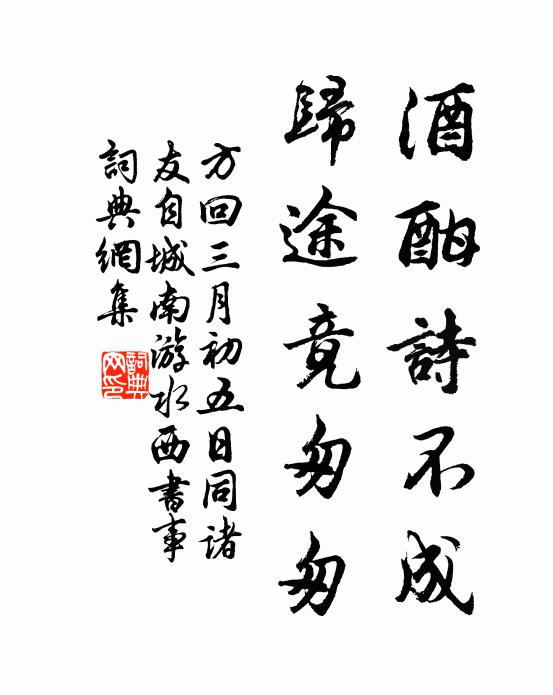 酒酣詩不成
歸途竟匆匆
方回三月初五日同諸
友自城南游水西書事
詞典網集
詞典
网印